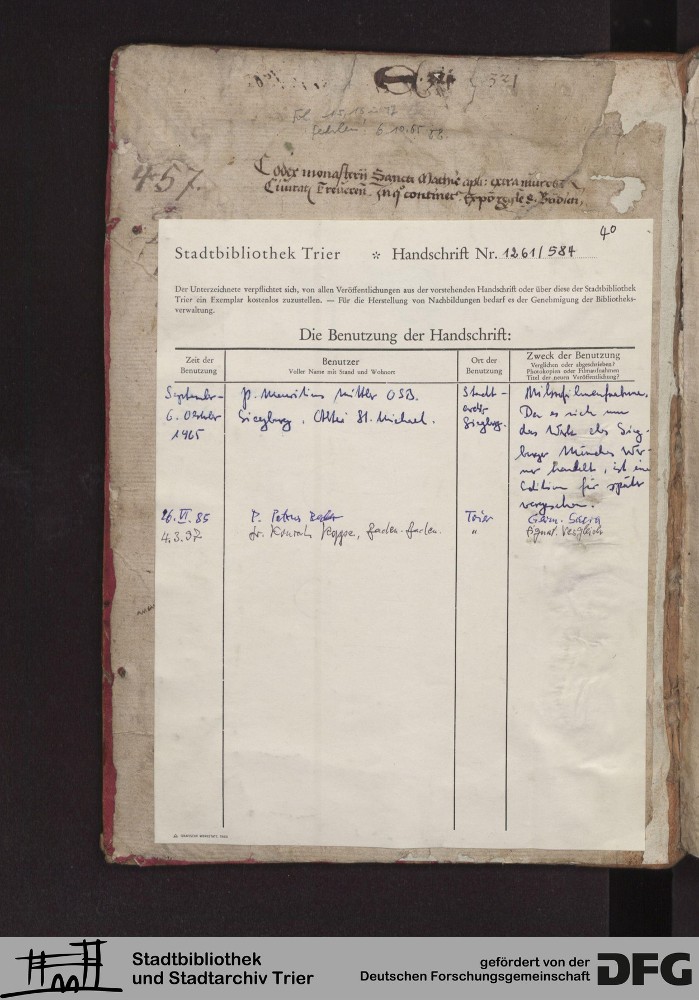 321 321
fehlen, 6.10.65
457.
Codex monasterii Sancti Mathie apli: extra muros
Civitat Treveren, in quo continet
40
Stadtbibliothek Trier * Handschrift Nr. 1261/584
Der Unterzeichnete verpflichtet sich, von allen Veröffentlichungen aus der vorstehenden Handschrift oder über diese der Stadtbibliothek
Trier ein Exemplar kostenlos zuzustellen. — Für die Herstellung von Nachbildungen bedarf es der Genehmigung der Bibliotheks-
verwaltung.
Die Benutzung der Handschrift:
Zeit der
Benutzung
Benutzer
Voller Name mit Stand und Wohnort
Ort der
Benutzung
Zweck der Benutzung
Verglichen oder abgeschrieben?
Photokopien oder Filmaufnahmen
Titel der neuen Veröffentlichung?
September- P. Mauritius Mittler OSB. Stadt- Mikrofilmaufnahme.
6. Oktober Siegburg, Abtei St. Michael. archiv Da es sich um
1965 Siegbg. das Werk des Sieg-
burger Mönches Wer-
ner handelt, ist eine
Edition für später
vorgesehen.
26.VI.85 P. Petrus Trier
4.3.97 Dr. Konrad Koppe, Baden-Baden. "
Stadtbibliothek
und Stadtarchiv Trier
gefördert von der
Deutschen Forschungsgemeinschaft DFG